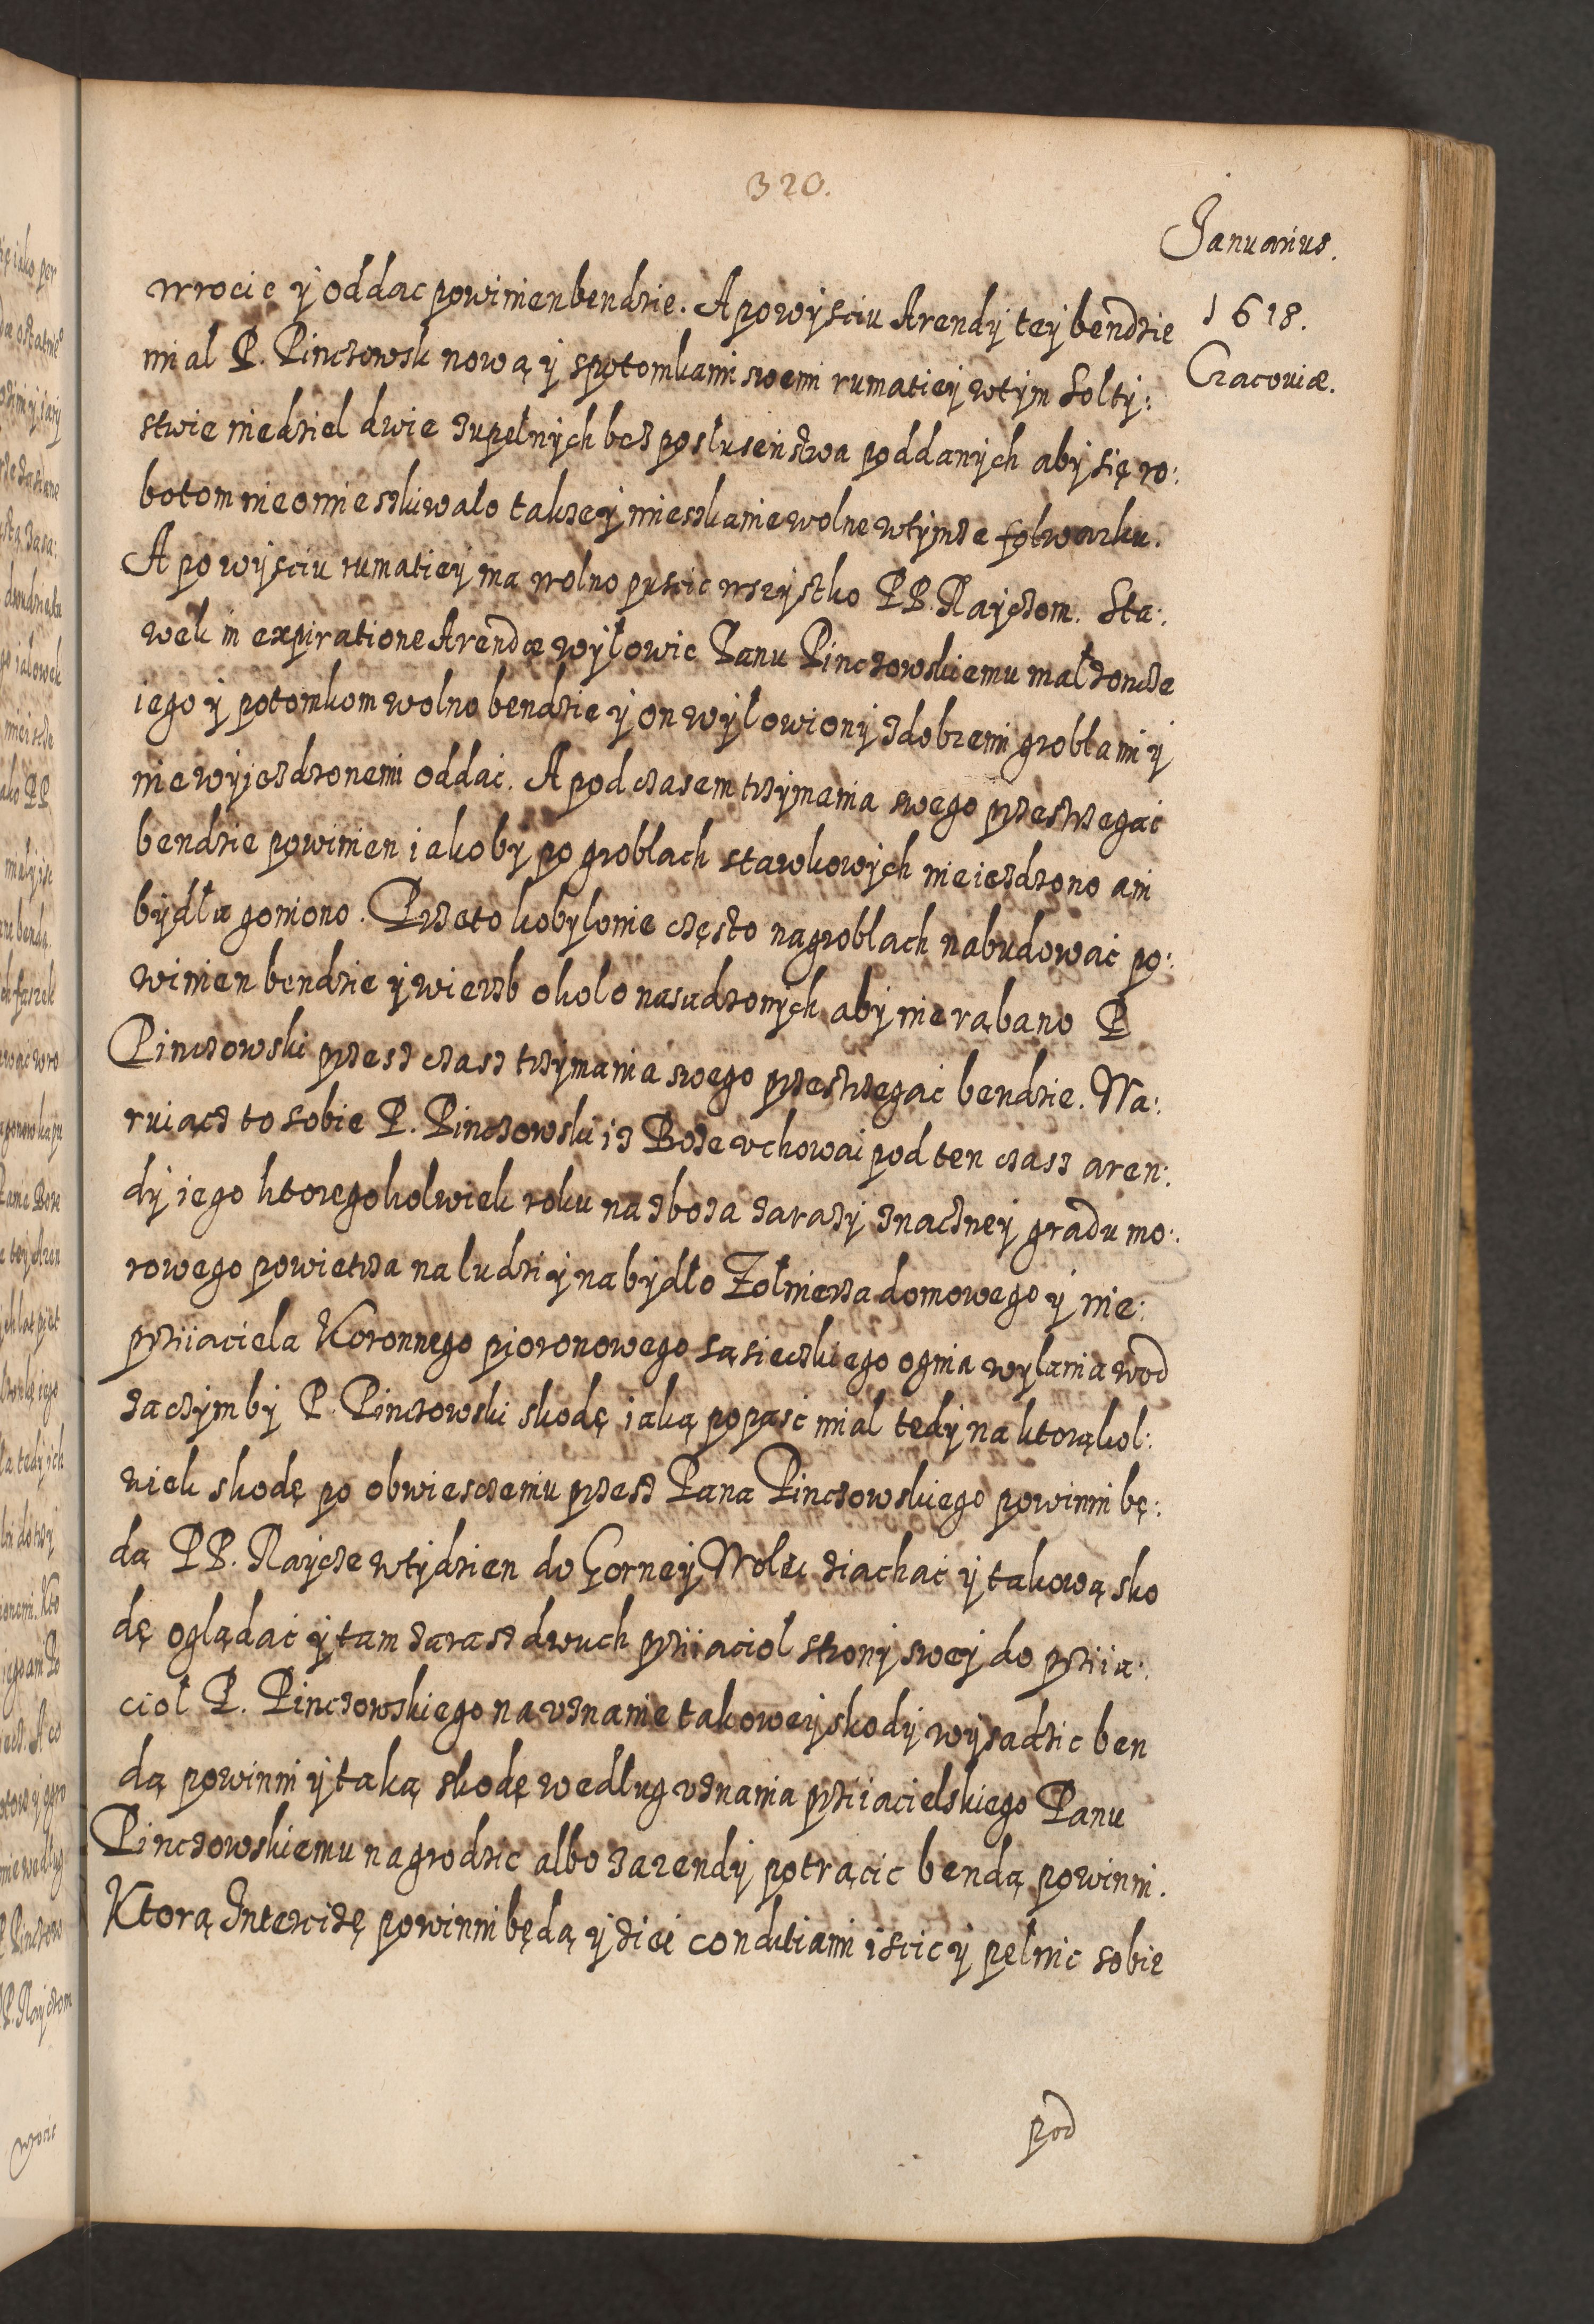 320.
Januarius.
1618.
Cracouiæ.
wrocic y oddac powinien bendzie. A po wysciu Arendy tey bendzie
mial P. Pinczowsk nową y s potomkami swemi rumatiey w tym Solty:
stwie niedziel dwie zupełnych bez poslusenstwa poddanych aby się ro:
botom nie omieszkiwalo takze y mieszkanie wolne w tymze folwarku.
A po wysciu rumatiey ma wolno puscic wszystko PP. Rayczom. Sta:
wek in expiratione Arendæ wyłowic Panu Pinczowskiemu małzonce
iego y potomkom wolno bendzie y on wyłowiony z dobremi groblami y
nie wyiezdzonemi oddać. A pod czasem trzymania swego przestrzegać
bendzie powinien iakoby po groblach stawkowych nie iezdzono ani
bydła goniono. Przeto kobylonie często na groblach nabudować po:
winien bendzie y wierzb okolo nasadzonych aby nie rąbano P
Pinczowski przesz czasz trzymania swego przestrzegać bendzie. Wa:
ruiącz to sobie P. Pinczowski iz Boze vchowai pod ten czasz aren:
dy iego ktoregokolwiek roku na zboza zarazy znaczney gradu mo:
rowego powietrza na ludzi y na bydło Zołnierza domowego y nie:
przyiaciela Koronnego pioronowego sąsieczkiego ognia wylania wod
zaczym by P. Pinczowski skodę iaką popasć mial tedy na ktorąkol:
wiek skodę po obwiesczeniu przesz Pana Pinczowskiego powinni bę:
dą PP. Raycze w tydzien do Gorney Wolei ziachać y takową sko
dę oglądać y tam zarasz dwuch przyiaciol strony swey do przyia:
ciol P. Pinczowskiego na vznanie takowey skody wysadzic ben
dą powinni y taką skodę według vznania przyiacielskiego Panu
Pinczowskiemu nagrodzic albo z arendy potrącic bendą powinni.
Ktorą Intercizę powinni będą y z iei conditiami iscic y pelnic sobie
pod